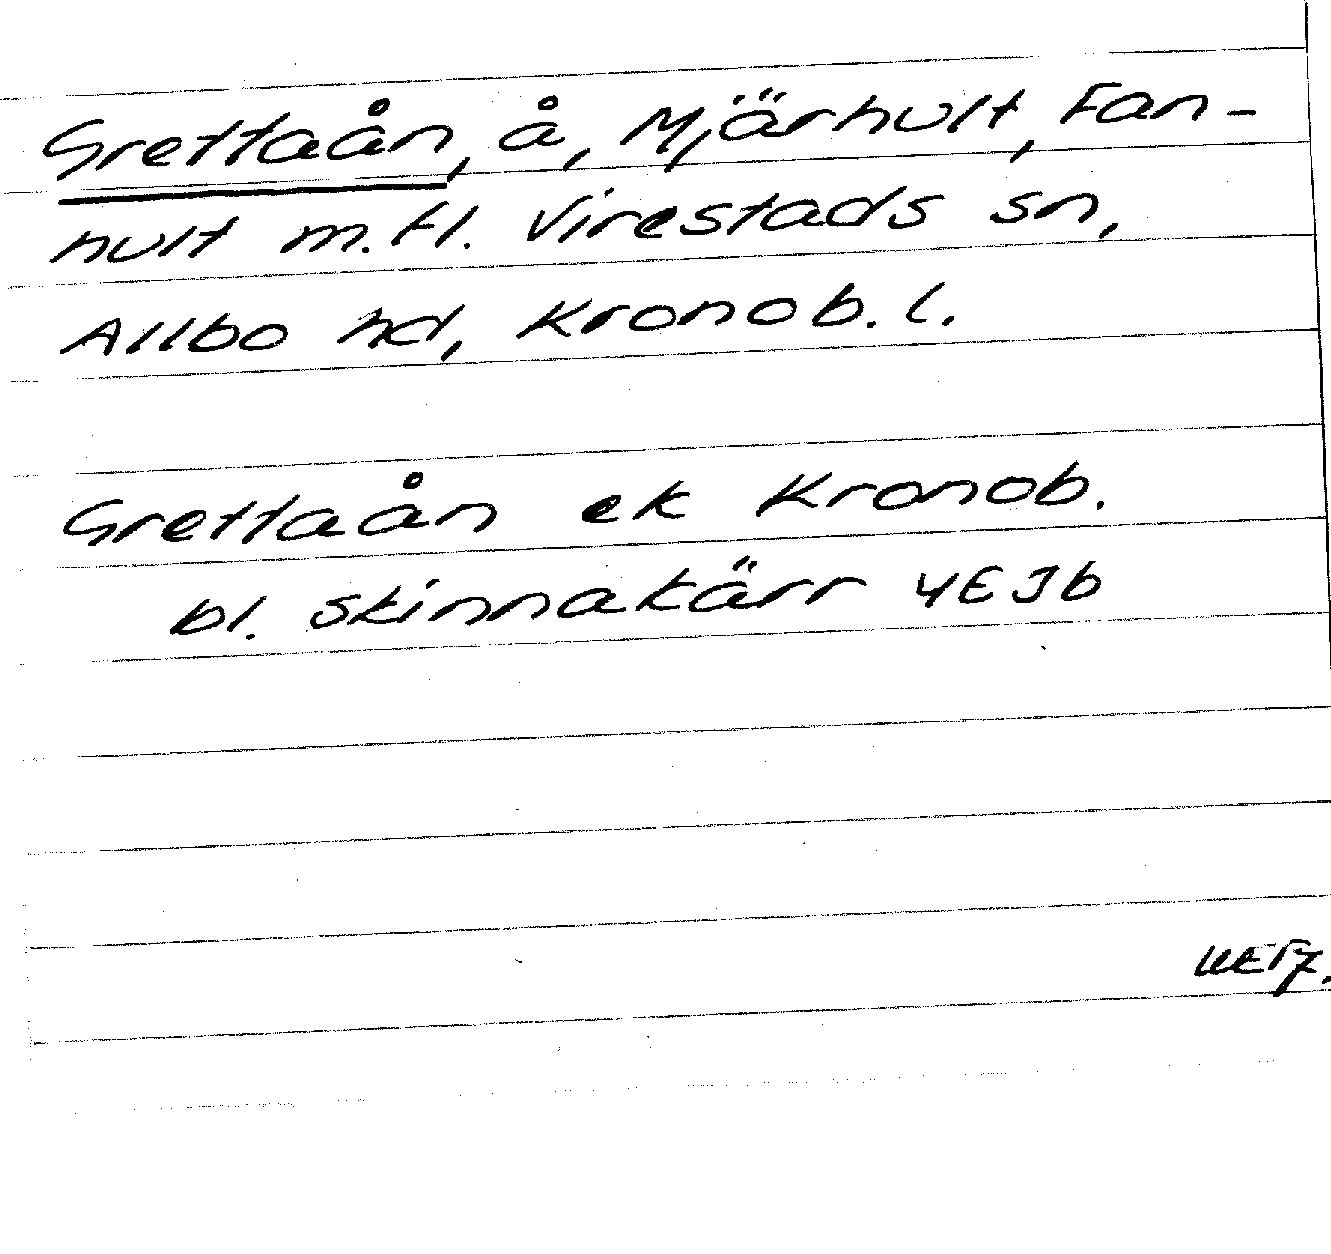 Grettaån, å, Mjärhult, Fan-
hult m.fl. Virestads sn,
Allbo hd, Kronob. l.
Grettaån ek Kronob.
bl. skinnakärr 4E3b